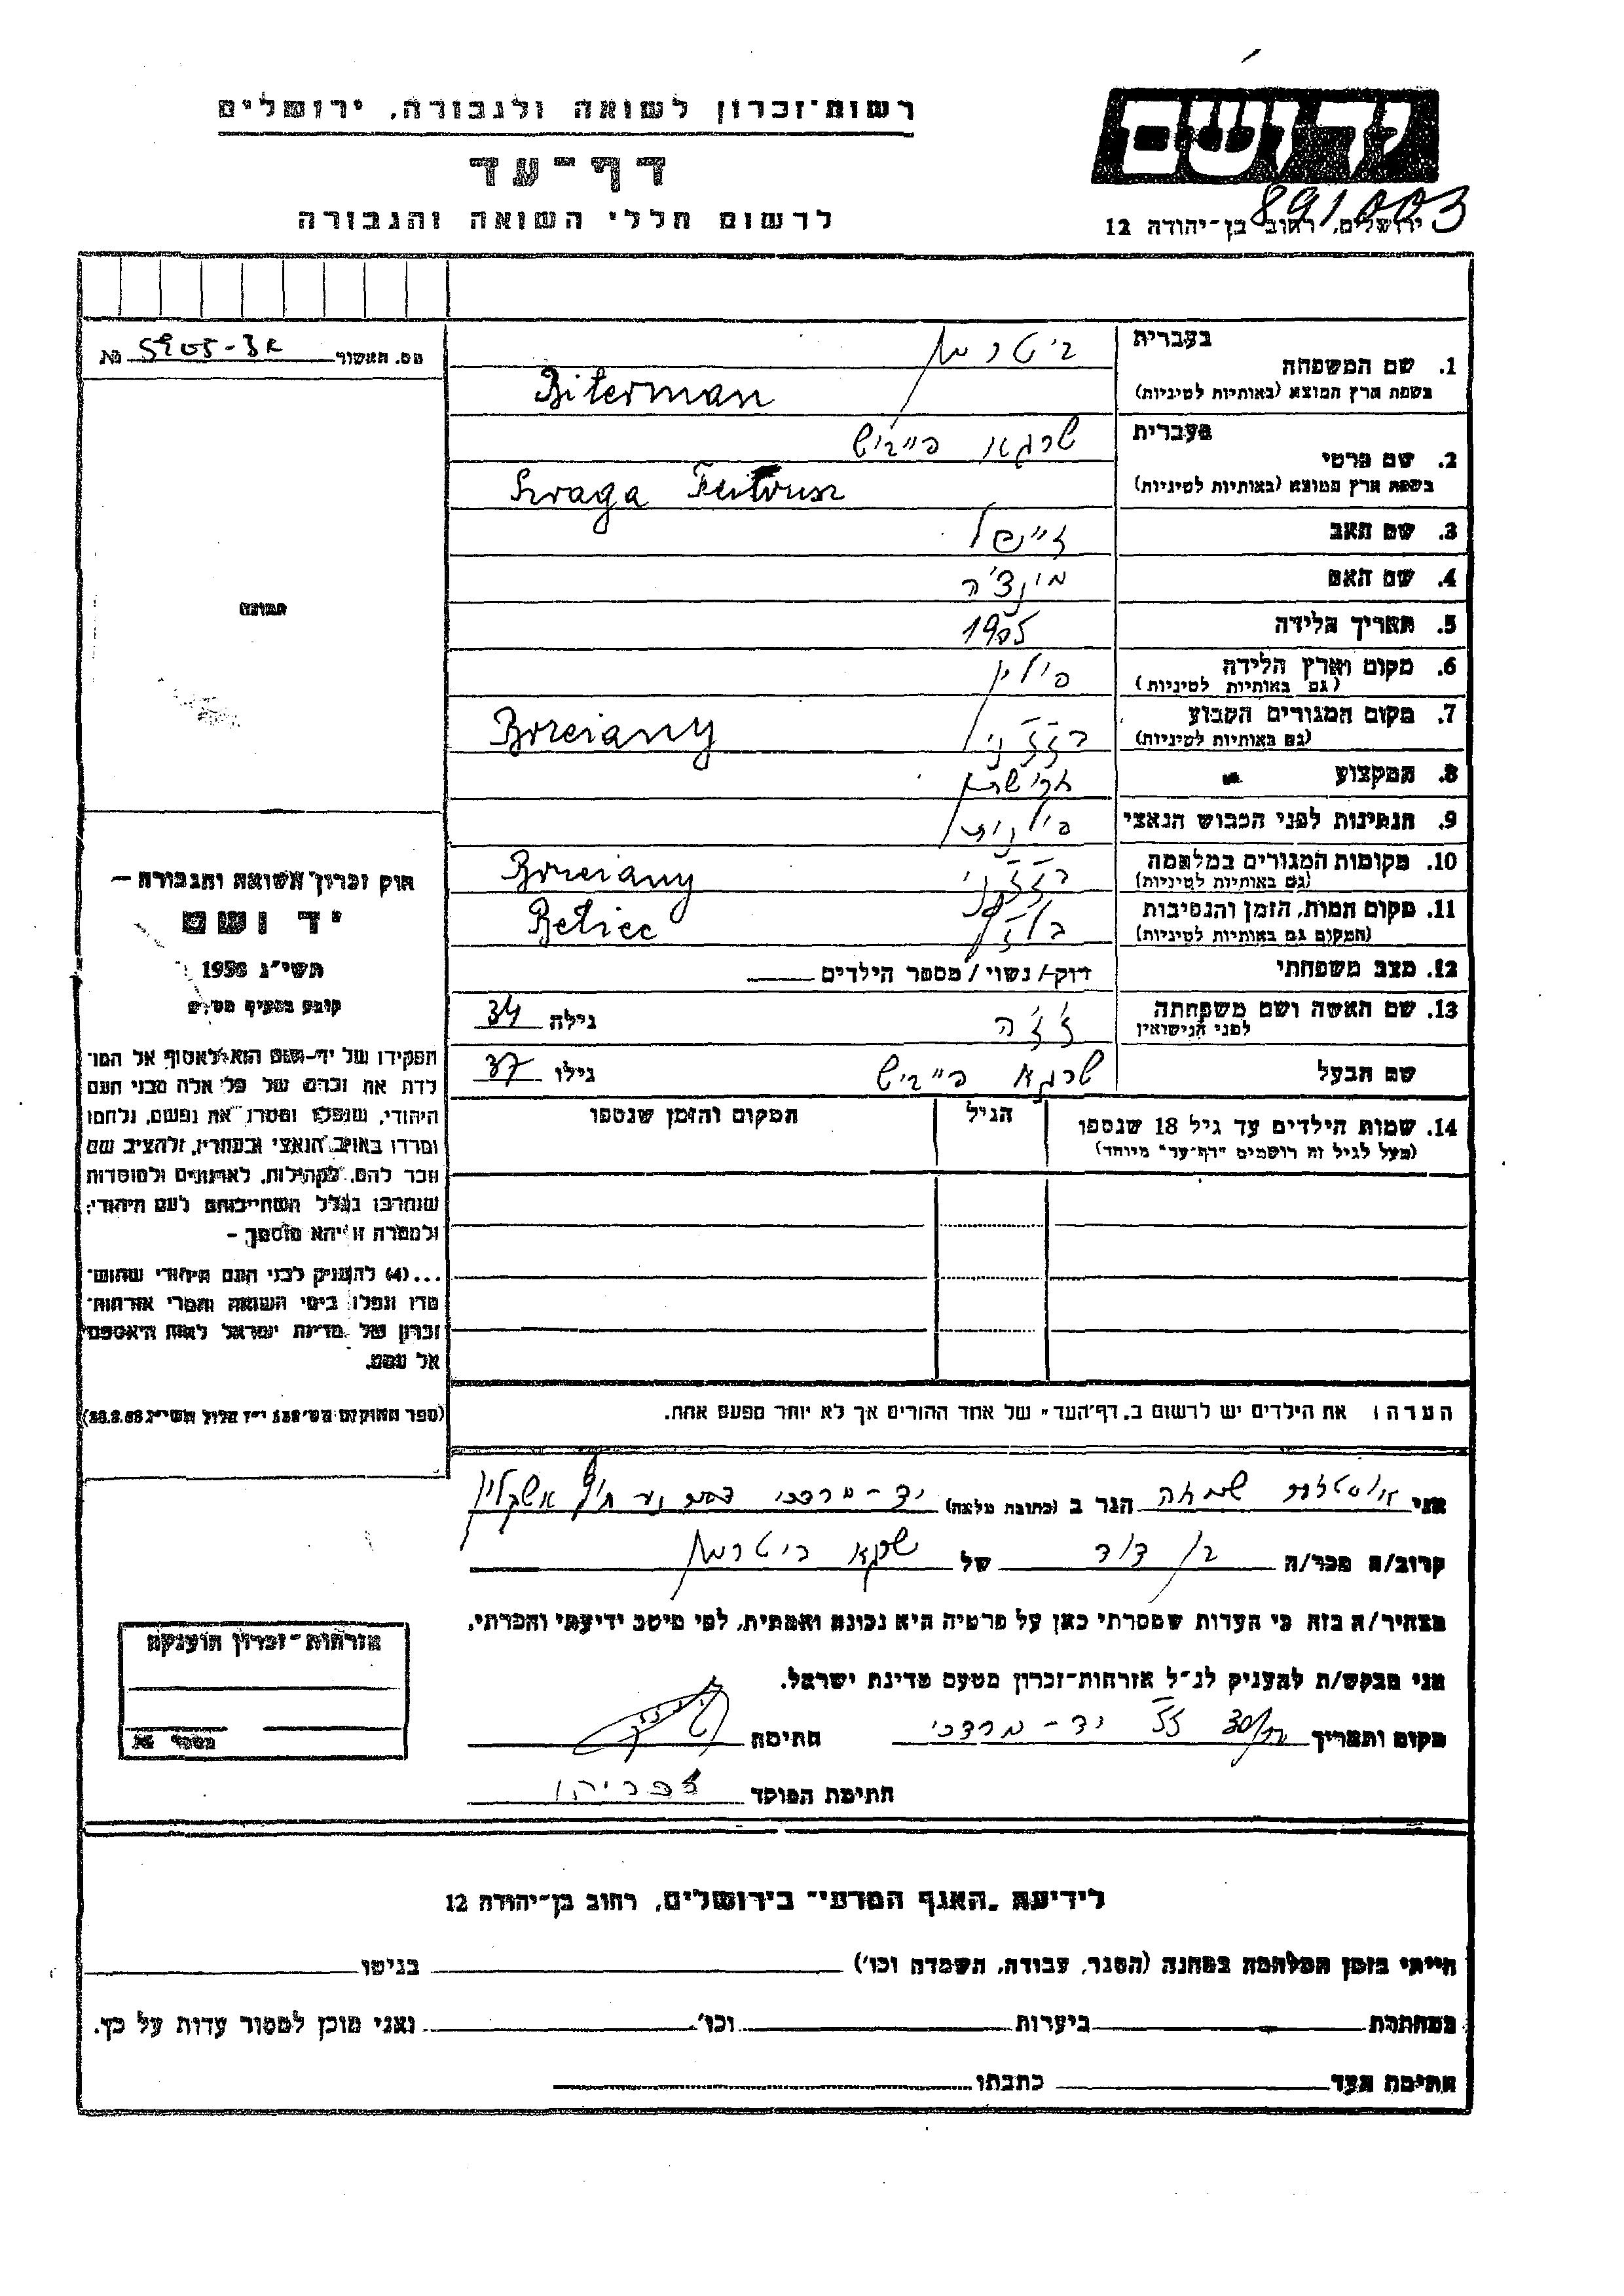 רשות־זכרון לשואה ולגבורה, ירושלים
יד ושם
דף־עד
891003
לרשום חללי השואה והגבורה
ירושלים, רחוב בן־יהודה 12
מס. האשור
בעברית
1. שם המשפחה ביטרמן
בשפת ארץ המוצא (באותיות לטיניות) Biterman
בעברית
2. שם פרטי שרגא פייביש
בשפת ארץ המוצא (באותיות לטיניות) Szraga
3. שם האב
4. שם האם
5. תאריך הלידה 1905
6. מקום וארץ הלידה פולין
(גם באותיות לטיניות)
7. מקום המגורים הקבוע Bzeziany
(גם באותיות לטיניות)
8. המקצוע
9. הנתינות לפני הכבוש הנאצי פולנית
10. מקומות המגורים במלחמה
(גם באותיות לטיניות)
11. מקום המות, הזמן והנסיבות Bełzec
(המקום גם באותיות לטיניות)
12. מצב משפחתי רוק/ נשוי/ מספר הילדים
13. שם האשה ושם משפחתה גילה 34
לפני הנישואין
שם הבעל שרגא פייביש גילו 37
14. שמות הילדים עד גיל 18 שנספו הגיל המקום והזמן שנספו
(מעל לגיל זה רושמים "דף־עד" מיוחד)
הערה: את הילדים יש לרשום ב"דף־העד" של אחד ההורים אך לא יותר מפעם אחת.
תמונה
חוק זכרון השואה והגבורה –
יד ושם
תשי"ג 1953
קובע בסעיף מס.
תפקידו של יד־ושם הוא לאסוף אל המו־
לדת את זכרם של כל אלה מבני העם
היהודי, שנפלו ומסרו את נפשם, נלחמו
ומרדו באויב הנאצי ובעוזריו, ולהציב שם
וזכר להם, לקהילות, לארגונים ולמוסדות
שנחרבו בגלל השתייכותם לעם היהודי;
ולמטרה זו יהא מוסמך –
...(4) להעניק לבני העם היהודי שהוש־
מדו ונפלו בימי השואה והמרי אזרחות־
זכרון של מדינת ישראל לאות היאספם
אל עמם.
אני שמחה הגר ב (כתובת מלאה) יד-מרדכי
קרוב/ה מכר/ה בן דוד של שרגא ביטרמן
מצהיר/ה בזה כי העדות שמסרתי כאן על פרטיה היא נכונה ואמתית, לפי מיטב ידיעתי והכרתי.
אני מבקש/ת להעניק לנ"ל אזרחות־זכרון מטעם מדינת ישראל.
מקום ותאריך יד-מרדכי חתימה
חתימת הפוקד
אזרחות־זכרון הוענקה
מספר
לידיעת "האגף המדעי" בירושלים, רחוב בן־יהודה 12
הייתי בזמן המלחמה במחנה (הסגר, עבודה, השמדה וכו') בגיטו
במחתרת ביערות וכו' ואני מוכן למסור עדות על כך.
חתימת העד כתבתו